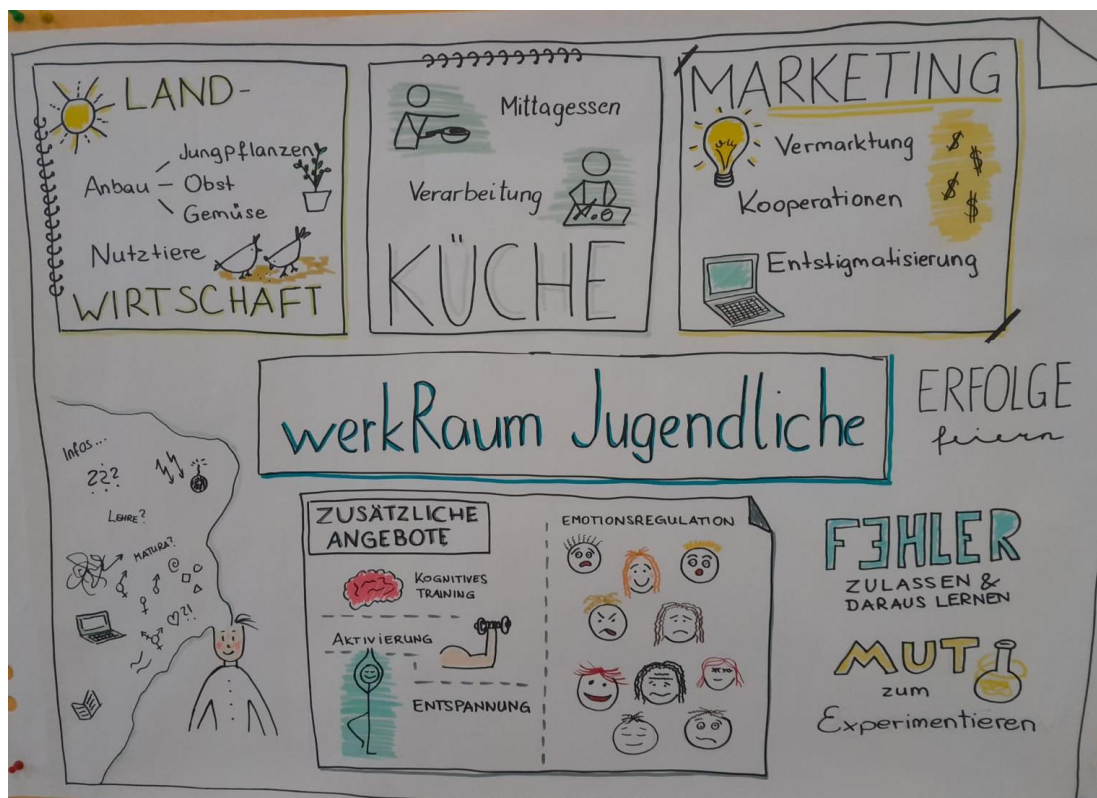 LAND-
Jungpflanzen
Anbau – Obst
Gemüse
Nutztiere
WIRTSCHAFT
Mittagessen
Verarbeitung
KÜCHE
MARKETING
Vermarktung
Kooperationen
Entstigmatisierung
$ $ $ $
werkRaum Jugendliche
ERFOLGE
feiern
Infos...
???
LEHRE?
MATURA?
?!
ZUSÄTZLICHE
ANGEBOTE
KOGNITIVES
TRAINING
AKTIVIERUNG
ENTSPANNUNG
EMOTIONSREGULATION
FEHLER
ZULASSEN &
DARAUS LERNEN
MUT
zum
Experimentieren